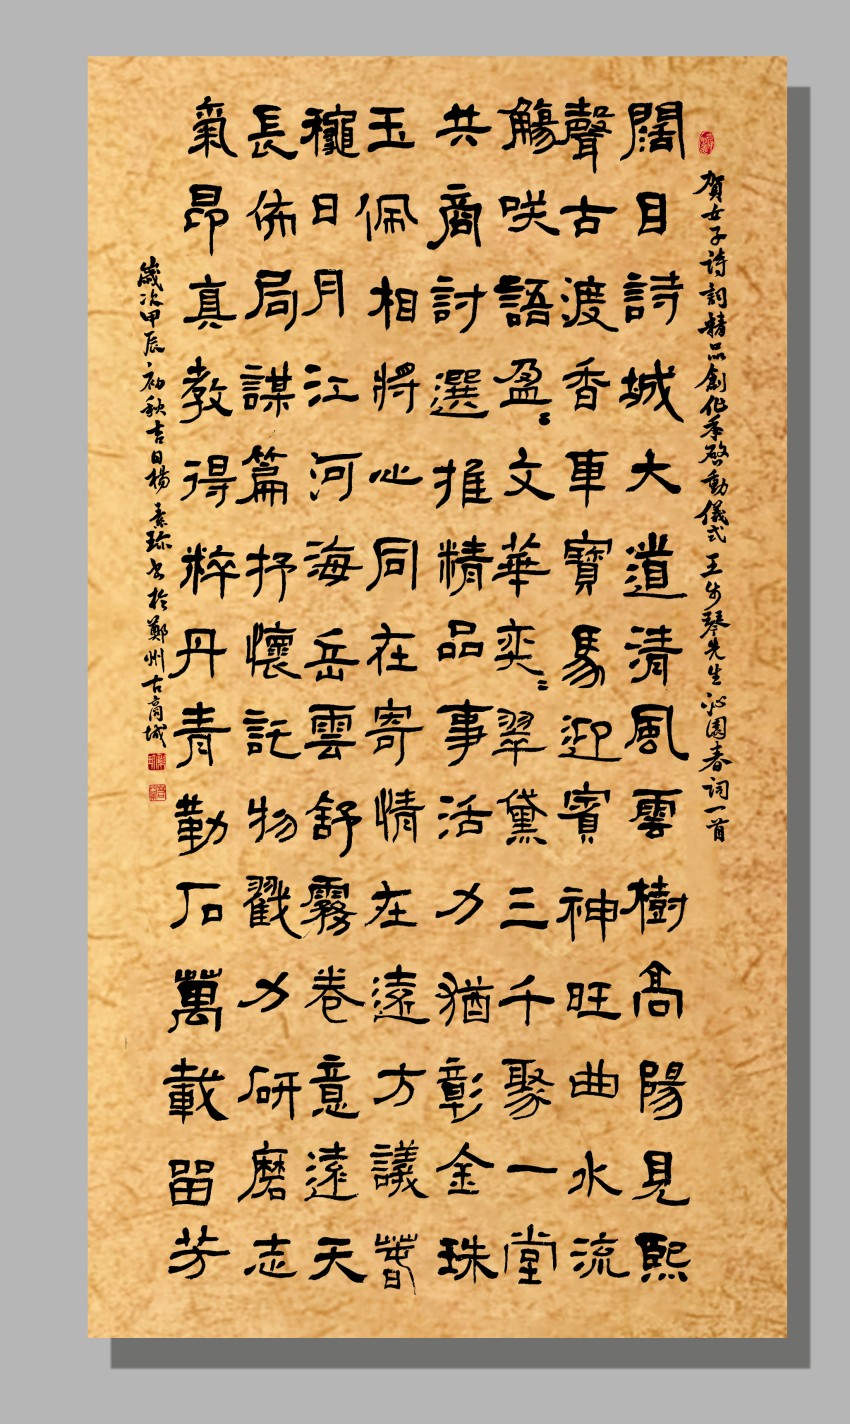 賀女子詩詞精品創作季啓動儀式 王步琴先生沁園春詞一首
闊目詩城大道清風雲樹高陽見熙
聲古渡香車寶馬迎賓神旺曲水流
觴咲語盈〻文華奕〻翠黛三千聚一堂
共商討選推精品事活力猶彰金珠
玉佩相將心同在寄情在遠方議萅
穠日月江河海岳雲舒霧卷意遠天
長佈局謀篇抒懷託物戮力研磨志
氣昂真教得粹丹青勒石萬載留芳
歲次甲辰初秋吉日楊素珍書於鄭州古商城